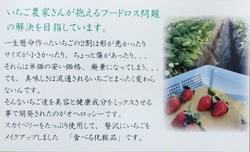 いちご農家さんが抱えるフードロス問題
の解決を目指しています。
一生懸命作ったいちごの2割は形が悪かったり
サイズが小さかったり、ちょっと傷があったり、、、
それらは単価の安い価格、廃棄になってしまう、、、
でも、美味しさは流通されるいちごとまったく変わら
ないんです。
そんないちご達を美容と健康成分をミックスさせる
事で開発されたのがオヘロッシーです。
スカイベリーをたっぷり使用して、贅沢にいちごを
メイクアップしました「食べる化粧品」です。